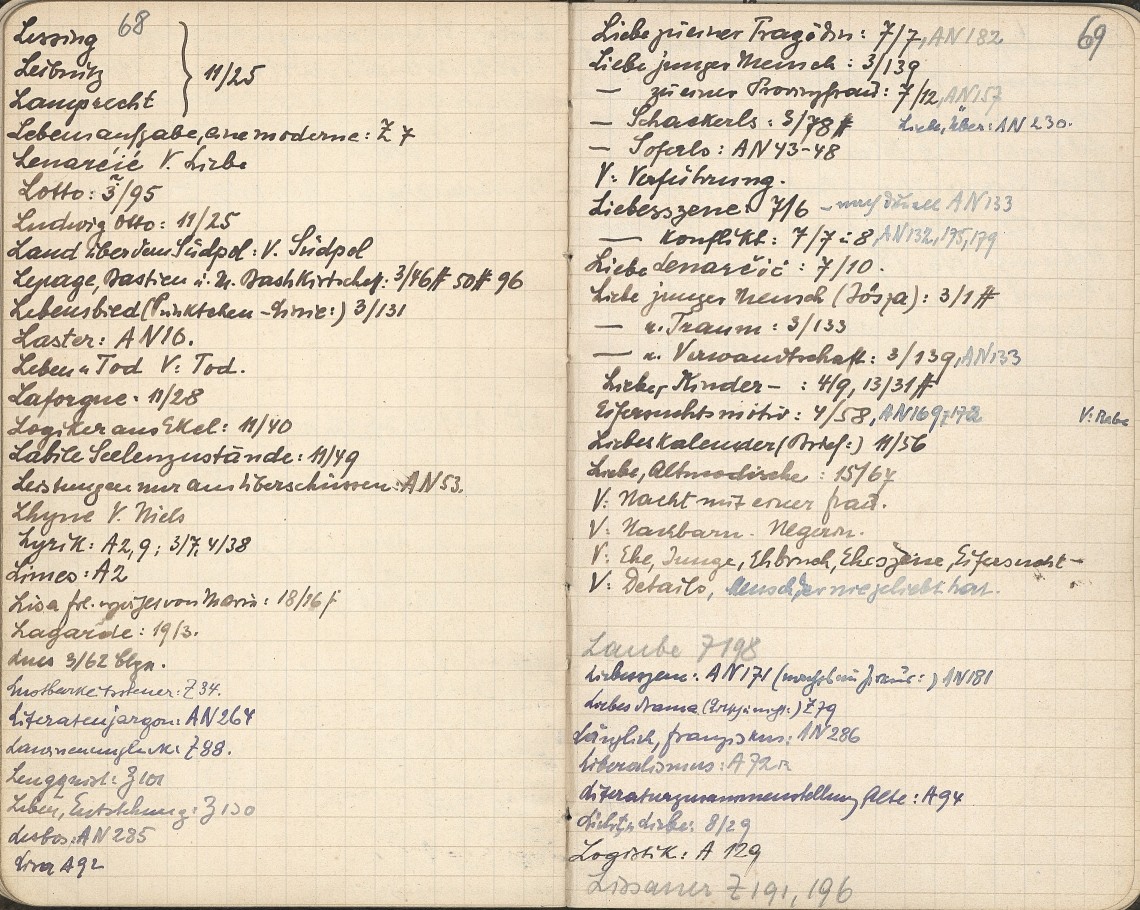 68
Lessing
Leibnitz } 11/25
Lamprecht
Lebensaufgabe, eine moderne: Z 7
Lenarčič V. Liebe
Lotto: 3/95
Ludwig Otto: 11/25
Land über dem Südpol: V. Südpol
Lepage, Bastien u. M. Bashkirtscheff: 3/46ff 50ff 96
Lebensbied (Pünktchen-Linie:) 3/131
Laster: AN 10.
Leben u Tod V: Tod.
Laforgue: 11/28
Logiker aus Ekel: 11/40
Labile Seelenzustände: 11/49
Leistungen nur aus Überschüssen: AN 53.
Lhyne V. Niels
Lyrik: A2, 9; 3/7, 4/38
Limes: A2
Lisa von Marie: 18/16
Lagarde: 19/3.
3/62
Lustbarkeitssteuer: Z 34.
Literatenjargon: AN 264
Lawinenunglück: Z 88.
Lengquist: Z 101
Leben, Entstehung: Z 130
Lesbos: AN 285
A 92
69
Liebe zu einer Tragödin: 7/7, AN 182
Liebe junger Mensch: 3/139
— zu einer Provinzfrau: 7/12, AN 157
— Schackerls: 3/78 ff Liebe, über: AN 230.
— Soferls: AN 43-48
V: Verführung.
Liebesszene: 7/6 – nach Duell AN 133
— Konflikt: 7/7 u 8, AN 132, 175, 179
Liebe Lenarčič: 7/10.
Liebe junger Mensch (Józsa): 3/1 ff
— u. Traum: 3/133
— u. Verwandtschaft: 3/139, AN 133
Liebe, Kinder- : 4/9, 13/31 ff
Eifersuchtsmotiv: 4/58, AN 169, 172 V:
Liebeskalender (Brief:) 11/56
Liebe, Altmodische: 15/67
V: Nacht mit einer Frau.
V: Nachbarn. Negerin.
V: Ehe, Junge, Ehbruch, Eheszene, Eifersucht –
V: Details, Mensch, der nie geliebt hat.
Laube Z 198
Liebesszene: AN 171 AN 181
Liebesdrama Z 79
Länglich, Franziskus: AN 286
Liberalismus: A 72
Literaturzusammenstellung Alte: A 94
Liebe: 8/29
Logistik: A 129
Lissauer Z 191, 196